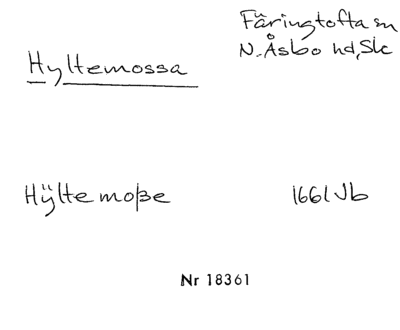 Färingtofta sn
N. Åsbo hd, Sk
Hyltemossa
Hÿltemoße 1661 Jb
Nr 18361